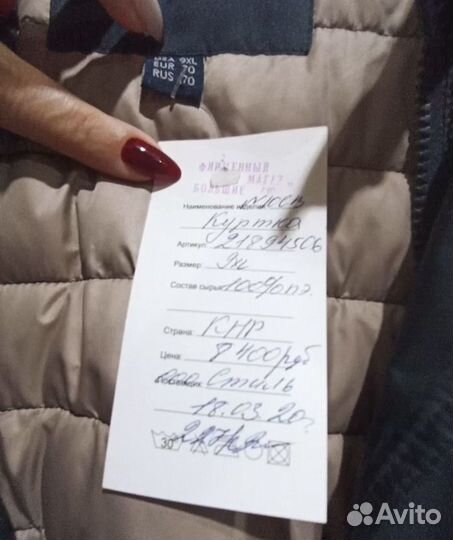 USA 9XL
EUR 70
RUS 70
ФИРМЕННЫЙ
МАГАЗ
БОЛЬШИЕ
Наименование изделия
Куртка
Артикул: 21894506
Размер: 9xl
Состав сырья: 100% пэ.
Страна: КНР
Цена: 8400 руб
ООО Стиль
18.03.20г.
30
Avito